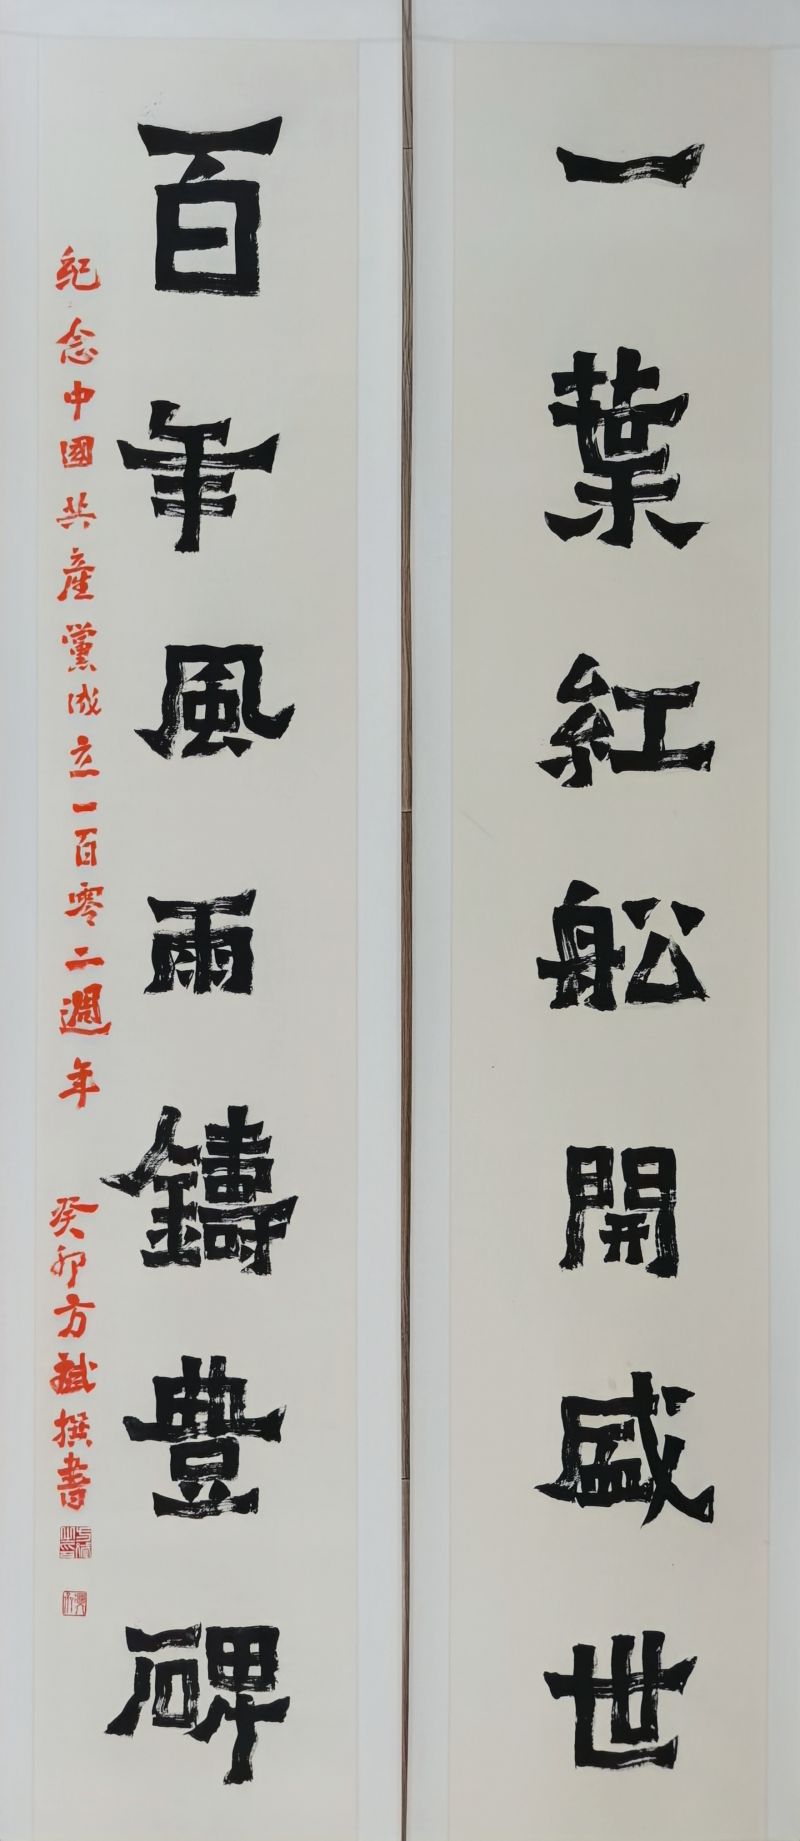 一葉紅舩開盛世
百年風雨鑄豐碑
紀念中國共產黨成立一百零二週年
癸卯方斌撰書